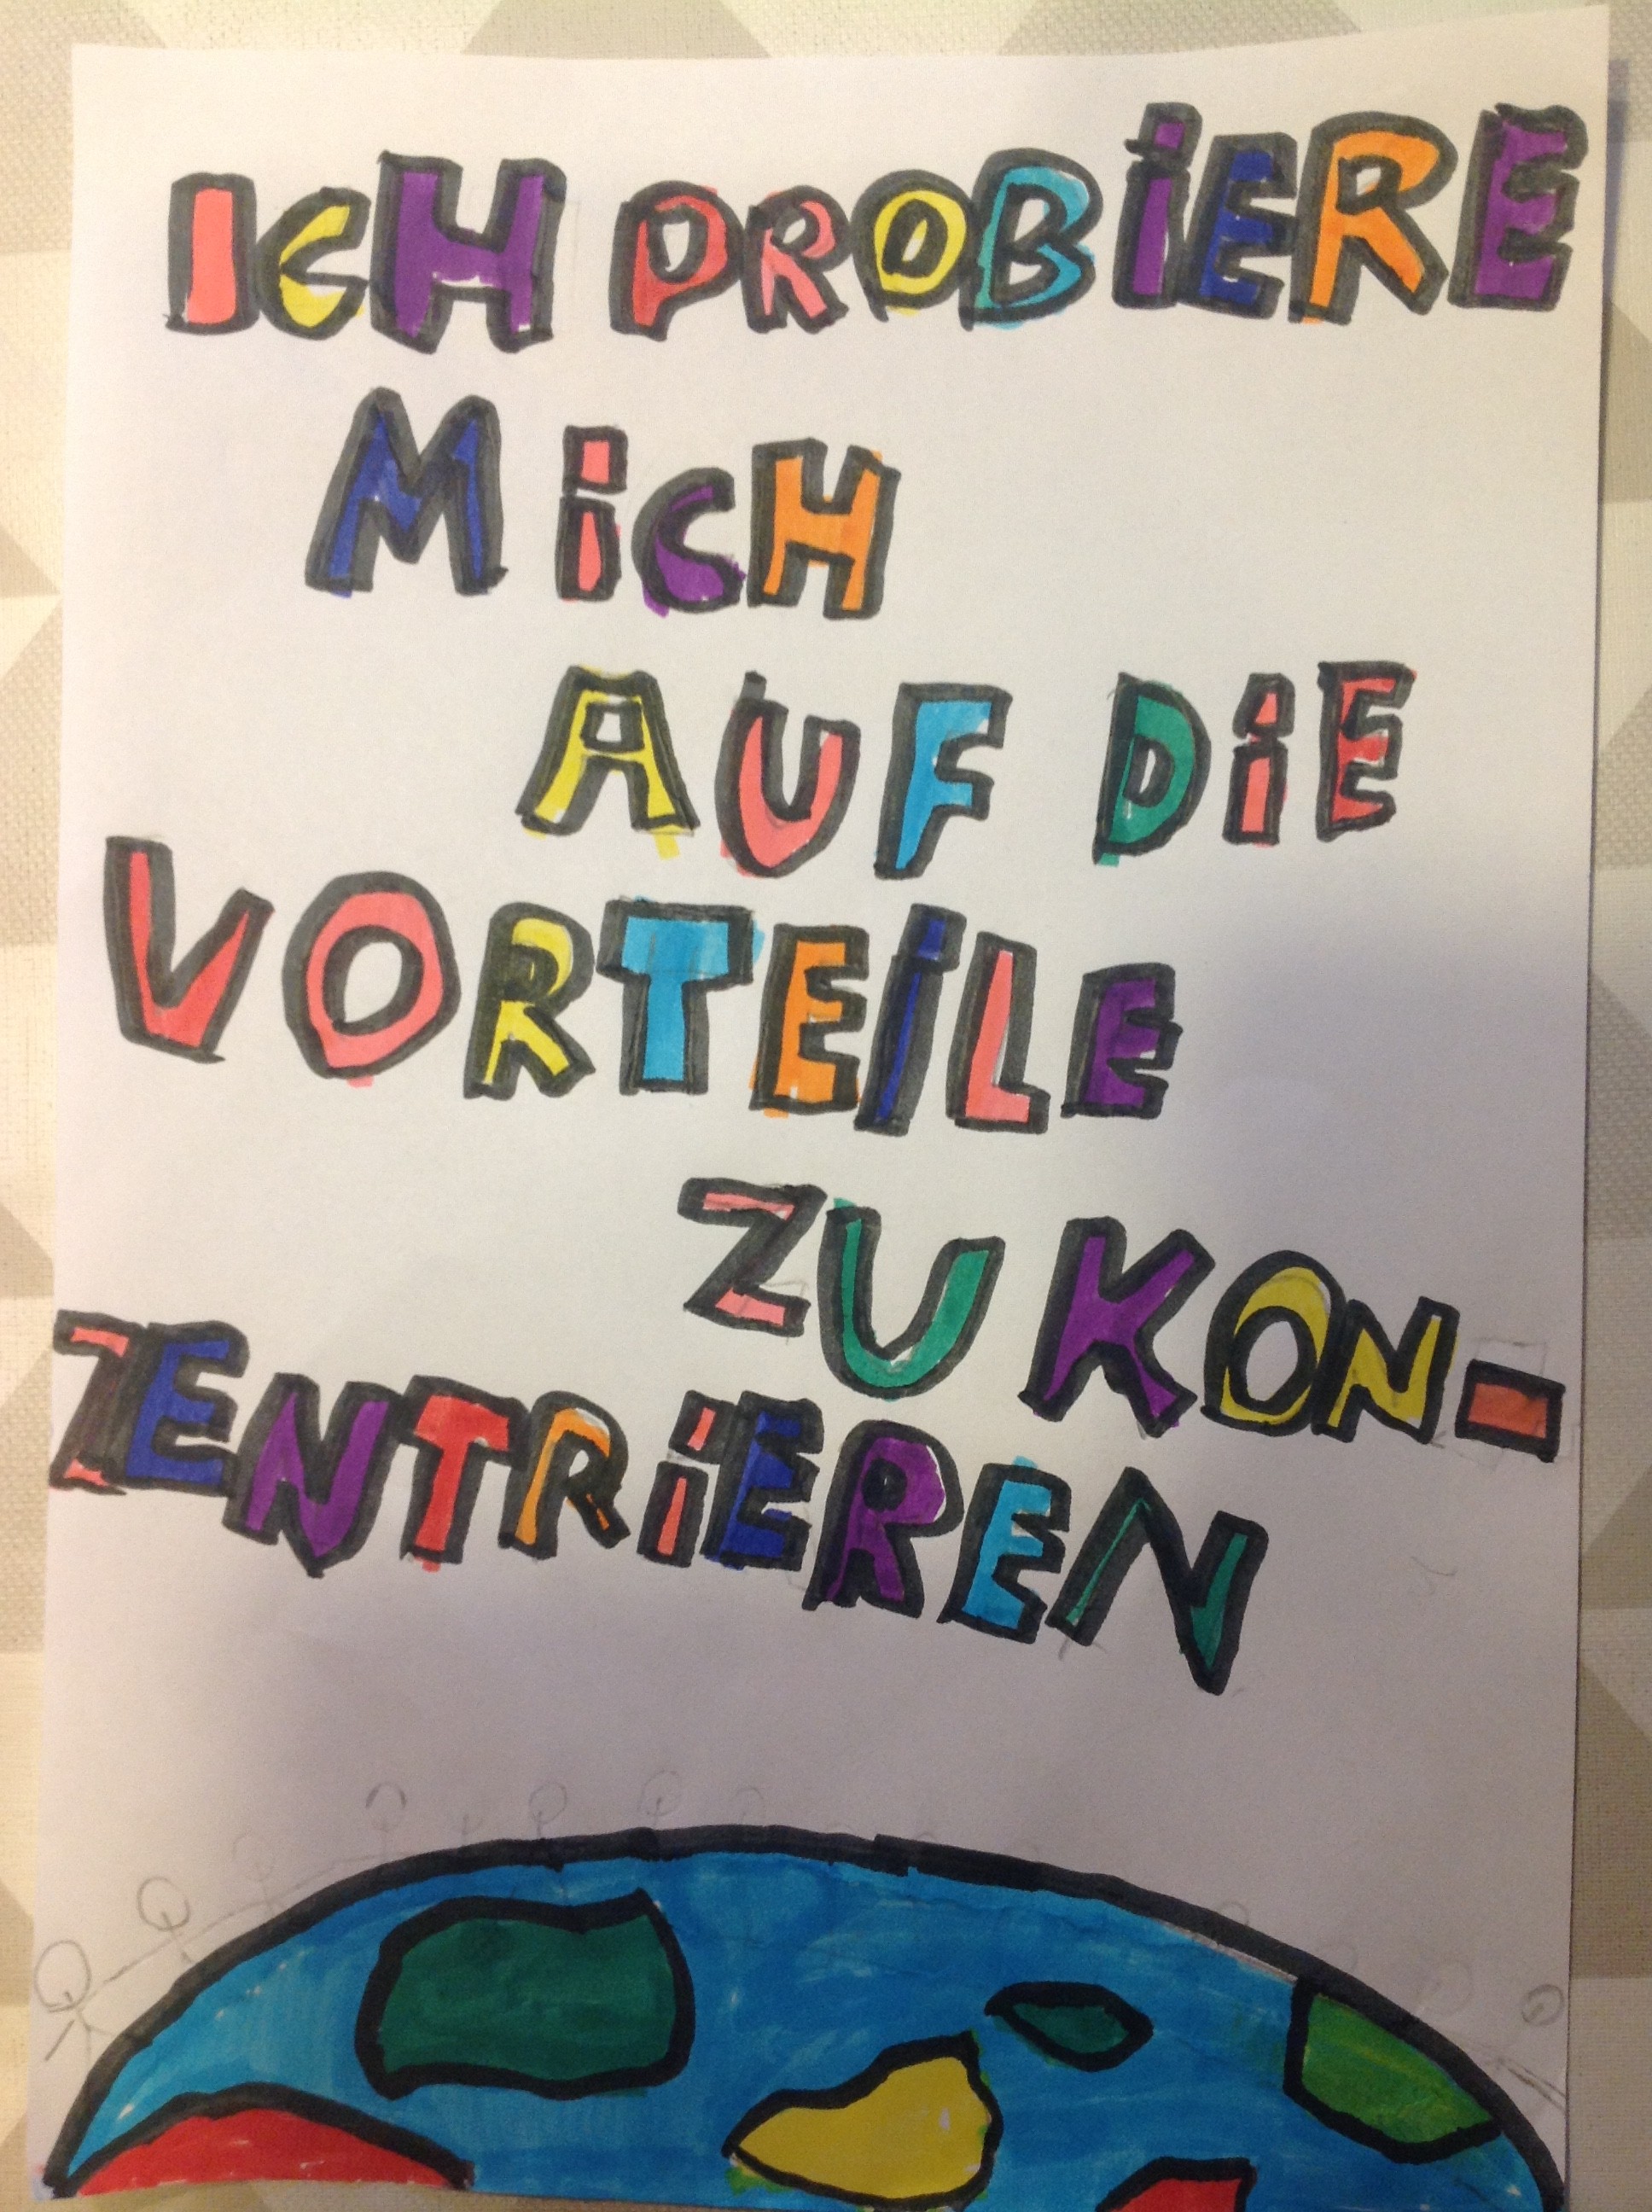 ICH PROBIERE
MiCH
AUF DiE
VORTEiLE
ZU KON-
ZENTRiEREN